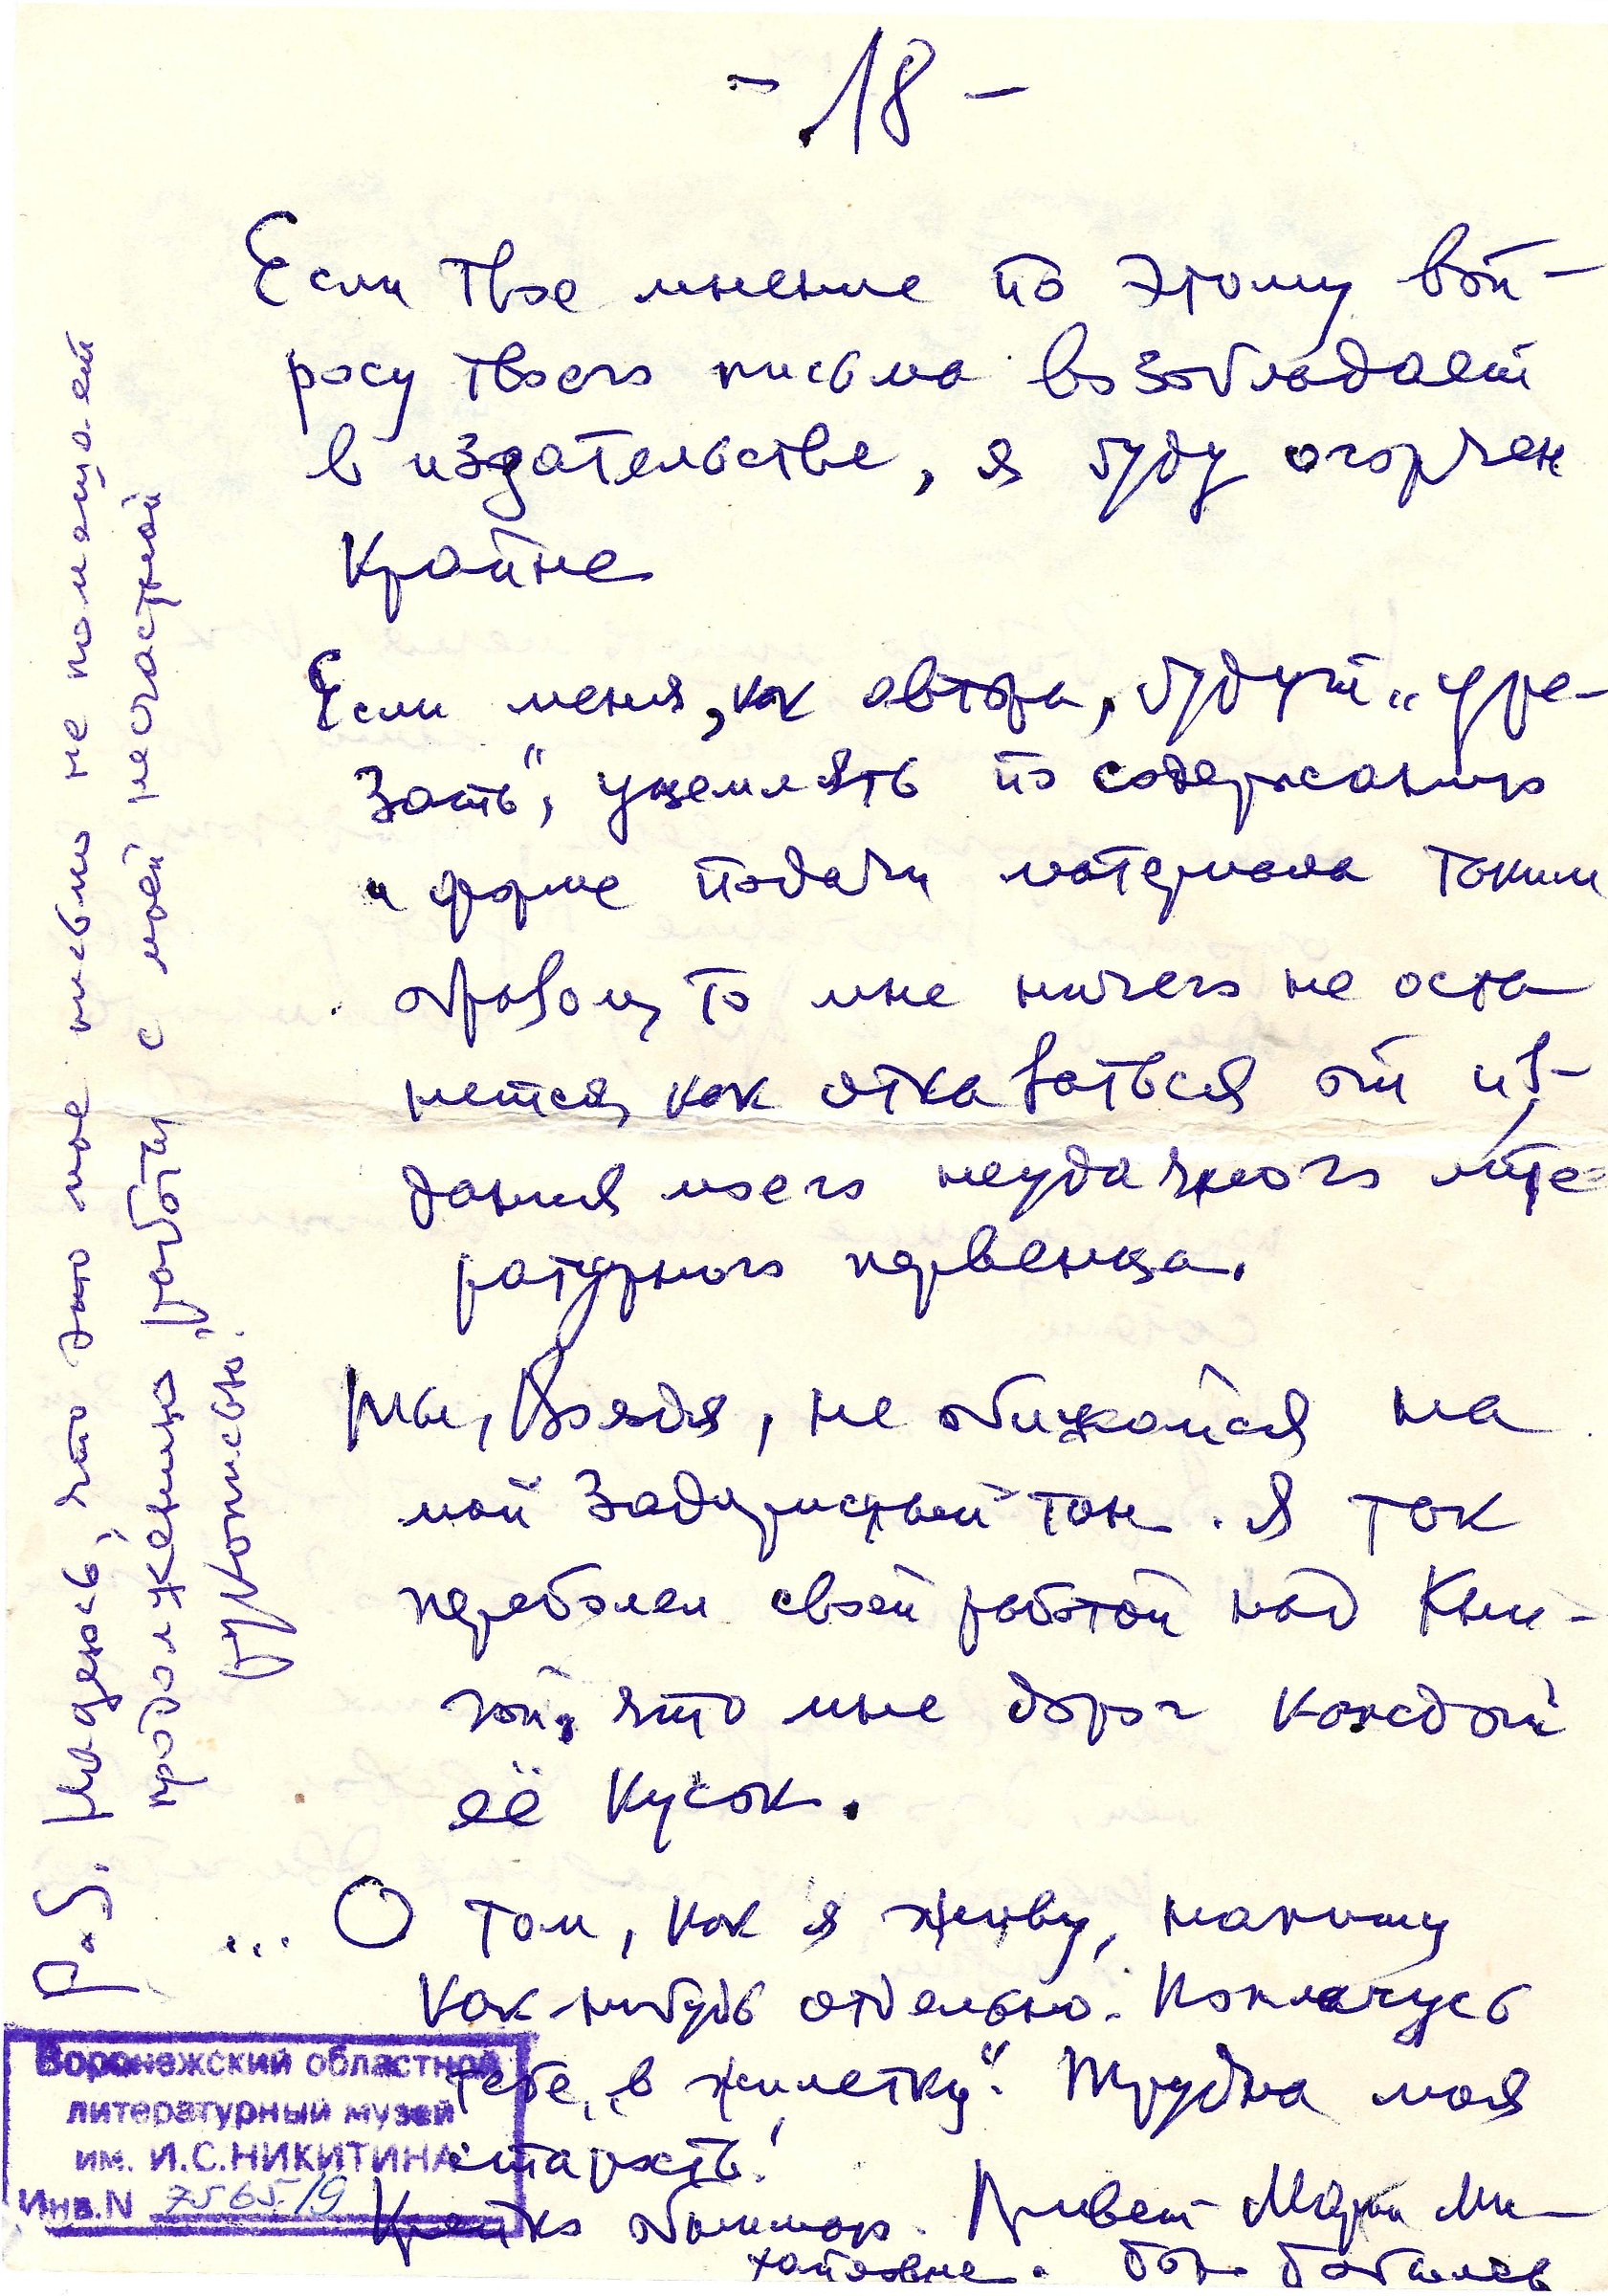 - 18 -
Если твое мнение по этому воп-
росу твоего письма возобладает
в издательстве, я буду огорчен
крайне
Если меня, как автора, будут „уре-
зать“, ущемлять по содержанию
и форме подачи материала таким
образом, то мне ничего не оста
нется, как отказаться от из-
дания моего неудачного лите-
ратурного первенца.
Ты, Володя, не обижайся на
мой задиристый тон. Я так
переболел своей работой над кни-
гой, что мне дорог каждый
её кусок.
... О том, как я живу, напишу
как-нибудь отдельно. Поплачусь
тебе „в жилетку“. Трудна моя
старость!
Крепко обнимаю. Привет Марии Ми-
хайловне.
P.S. Надеюсь, что это мое письмо не помешает
продолжению работы с моей несчастной
рукописью.
Воронежский областной
литературный музей
им. И.С.НИКИТИНА
Инв.N 7565/9